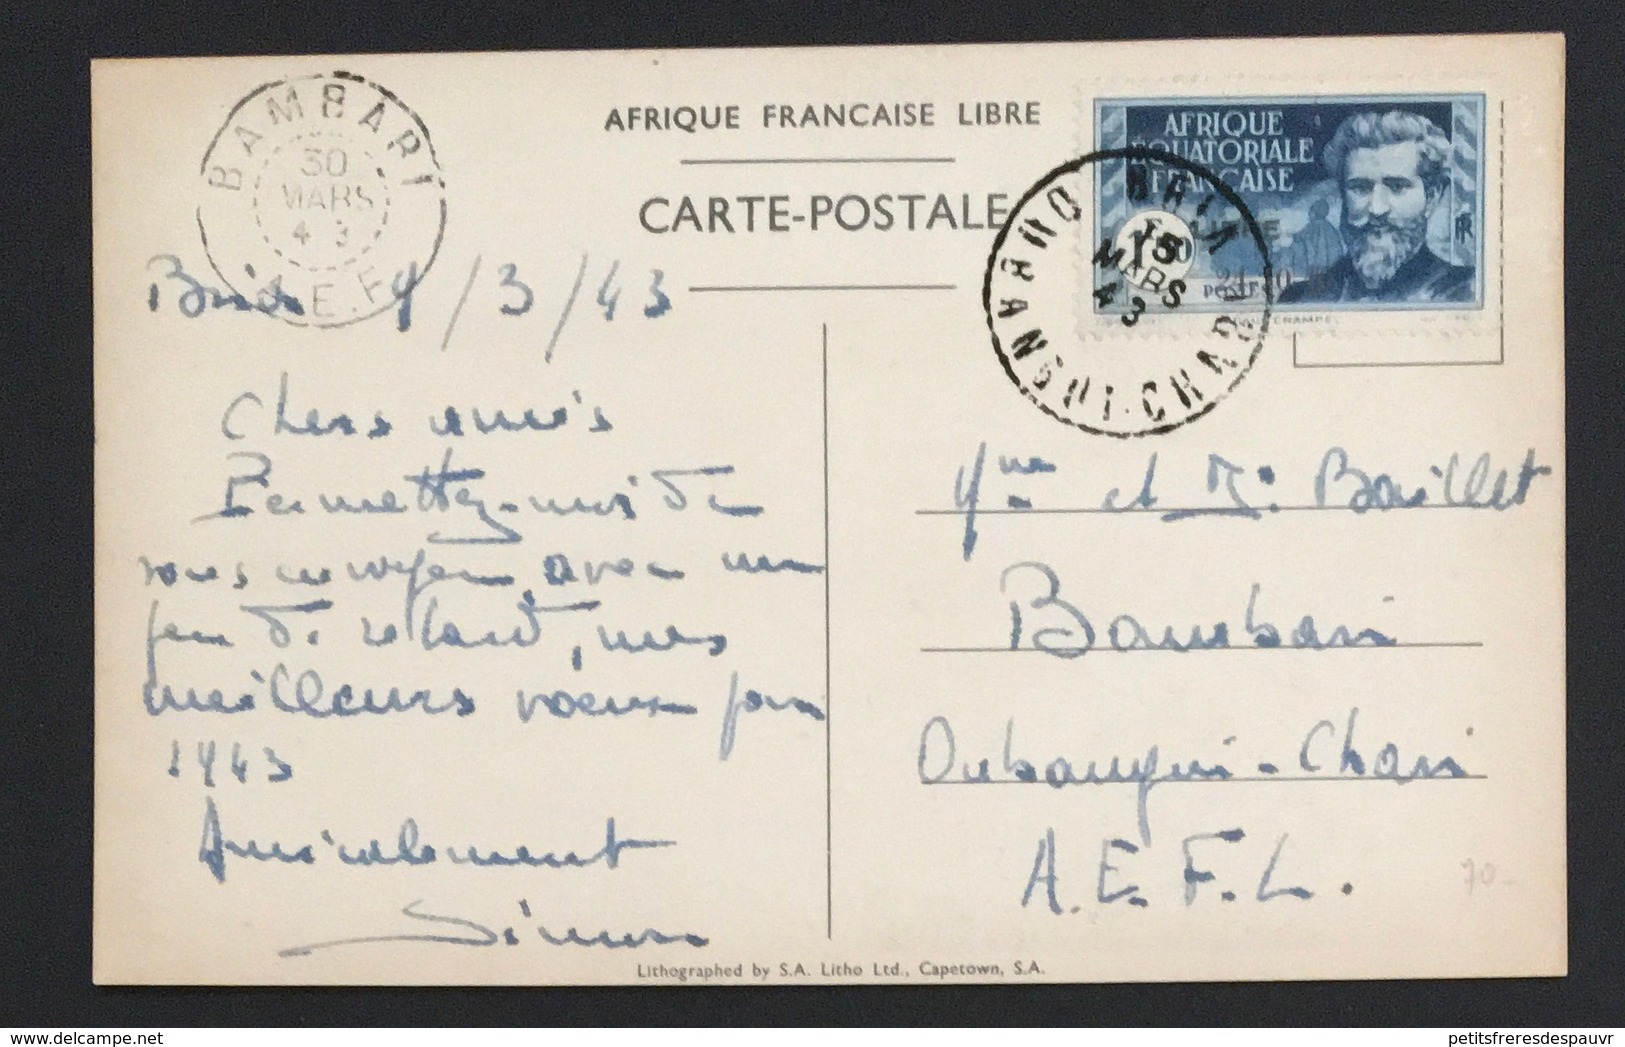 BAMBARI
30
MARS
4 3
A.E.F
AFRIQUE FRANCAISE LIBRE
CARTE-POSTALE
AFRIQUE
EQUATORIALE
FRANÇAISE
LIBRE
24-10-
POSTES
RF
BRIA
15
MARS
4 3
OUBANGUI-CHARI
Bria 9/3/43
Chers amis
Permettez-moi de
vous envoyer, avec un
peu de retard, mes
meilleurs voeux pour
1943
Amicalement
Mme et M. Baillet
Bambari
Oubangui-Chari
A.E.F.L.
70-
Lithographed by S.A. Litho Ltd., Capetown, S.A.
petitsfreresdespauvr